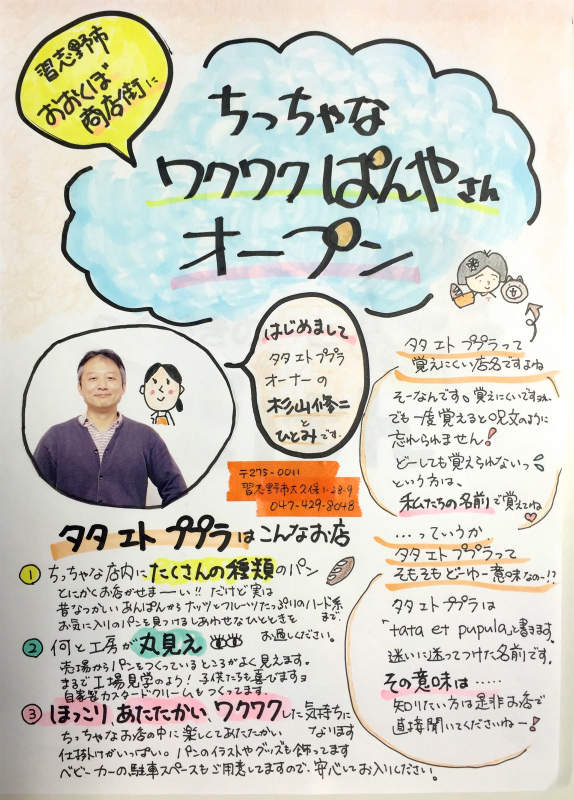 習志野市
おおくぼ
商店街に
ちっちゃな
ワクワクぱんやさん
オープン
はじめまして
タタ エト ププラ
オーナーの
杉山修二
と
ひとみです。
〒275-0011
習志野市大久保1-28-9
047-429-8048
タタ エト ププラって
覚えにくい店名ですよね
そーなんです。覚えにくいですよね
でも一度覚えると呪文のように
忘れられません!
どーしても覚えられないっ
という方は、
私たちの名前で覚えてね
…っていうか
タタ エト ププラって
そもそもどーゆー意味なのー!?
タタ エト ププラは
「tata et pupula」と書きます。
迷いに迷ってつけた名前です。
その意味は……
知りたい方は是非お店で
直接聞いてくださいねー!
タタ エト ププラはこんなお店
① ちっちゃな店内にたくさんの種類のパン
とにかくお店がせまーい!! だけど実は
昔なつかしいあんぱんからナッツとフルーツたっぷりのハード系まで
お気に入りのパンを見つけるしあわせなひとときを
お過しください。
② 何と工房が丸見え
売場からパンをつくっているところがよく見えます。
まるで工場見学のよう! 子供たちも喜びますョ
自家製カスタードクリームもつくってます。
③ ほっこり、あたたかい、ワクワクした気持ちに
なります
ちっちゃなお店の中に楽しくてあたたかい
仕掛けがいっぱい。パンのイラストやグッズも飾ってます
ベビーカーの駐車スペースもご用意してますので、安心してお入りください。